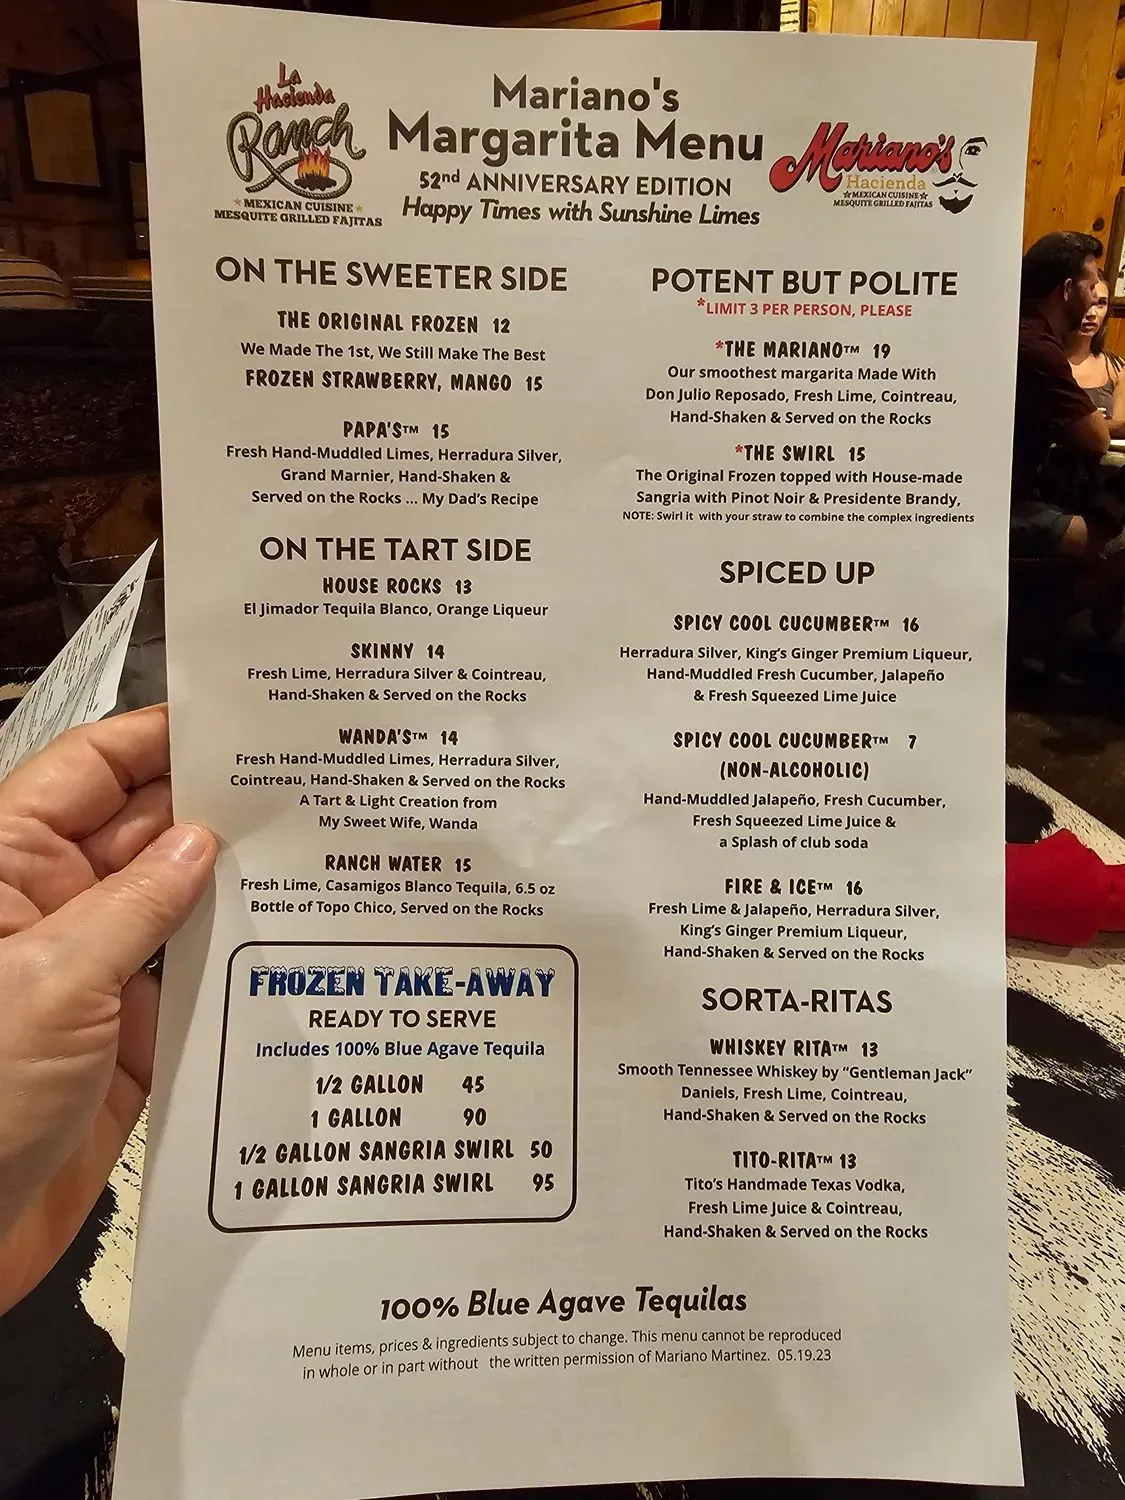 La
Hacienda
Ranch
MEXICAN CUISINE
MESQUITE GRILLED FAJITAS
Mariano's
Margarita Menu
52nd ANNIVERSARY EDITION
Happy Times with Sunshine Limes
Mariano's
Hacienda
MEXICAN CUISINE
MESQUITE GRILLED FAJITAS
ON THE SWEETER SIDE
THE ORIGINAL FROZEN 12
We Made The 1st, We Still Make The Best
FROZEN STRAWBERRY, MANGO 15
PAPA'S™ 15
Fresh Hand-Muddled Limes, Herradura Silver,
Grand Marnier, Hand-Shaken &
Served on the Rocks ... My Dad's Recipe
ON THE TART SIDE
HOUSE ROCKS 13
El Jimador Tequila Blanco, Orange Liqueur
SKINNY 14
Fresh Lime, Herradura Silver & Cointreau,
Hand-Shaken & Served on the Rocks
WANDA'S™ 14
Fresh Hand-Muddled Limes, Herradura Silver,
Cointreau, Hand-Shaken & Served on the Rocks
A Tart & Light Creation from
My Sweet Wife, Wanda
RANCH WATER 15
Fresh Lime, Casamigos Blanco Tequila, 6.5 oz
Bottle of Topo Chico, Served on the Rocks
FROZEN TAKE-AWAY
READY TO SERVE
Includes 100% Blue Agave Tequila
1/2 GALLON 45
1 GALLON 90
1/2 GALLON SANGRIA SWIRL 50
1 GALLON SANGRIA SWIRL 95
POTENT BUT POLITE
*LIMIT 3 PER PERSON, PLEASE
*THE MARIANO™ 19
Our smoothest margarita Made With
Don Julio Reposado, Fresh Lime, Cointreau,
Hand-Shaken & Served on the Rocks
*THE SWIRL 15
The Original Frozen topped with House-made
Sangria with Pinot Noir & Presidente Brandy,
NOTE: Swirl it with your straw to combine the complex ingredients
SPICED UP
SPICY COOL CUCUMBER™ 16
Herradura Silver, King's Ginger Premium Liqueur,
Hand-Muddled Fresh Cucumber, Jalapeño
& Fresh Squeezed Lime Juice
SPICY COOL CUCUMBER™ 7
(NON-ALCOHOLIC)
Hand-Muddled Jalapeño, Fresh Cucumber,
Fresh Squeezed Lime Juice &
a Splash of club soda
FIRE & ICE™ 16
Fresh Lime & Jalapeño, Herradura Silver,
King's Ginger Premium Liqueur,
Hand-Shaken & Served on the Rocks
SORTA-RITAS
WHISKEY RITA™ 13
Smooth Tennessee Whiskey by “Gentleman Jack”
Daniels, Fresh Lime, Cointreau,
Hand-Shaken & Served on the Rocks
TITO-RITA™ 13
Tito's Handmade Texas Vodka,
Fresh Lime Juice & Cointreau,
Hand-Shaken & Served on the Rocks
100% Blue Agave Tequilas
Menu items, prices & ingredients subject to change. This menu cannot be reproduced
in whole or in part without the written permission of Mariano Martinez. 05.19.23